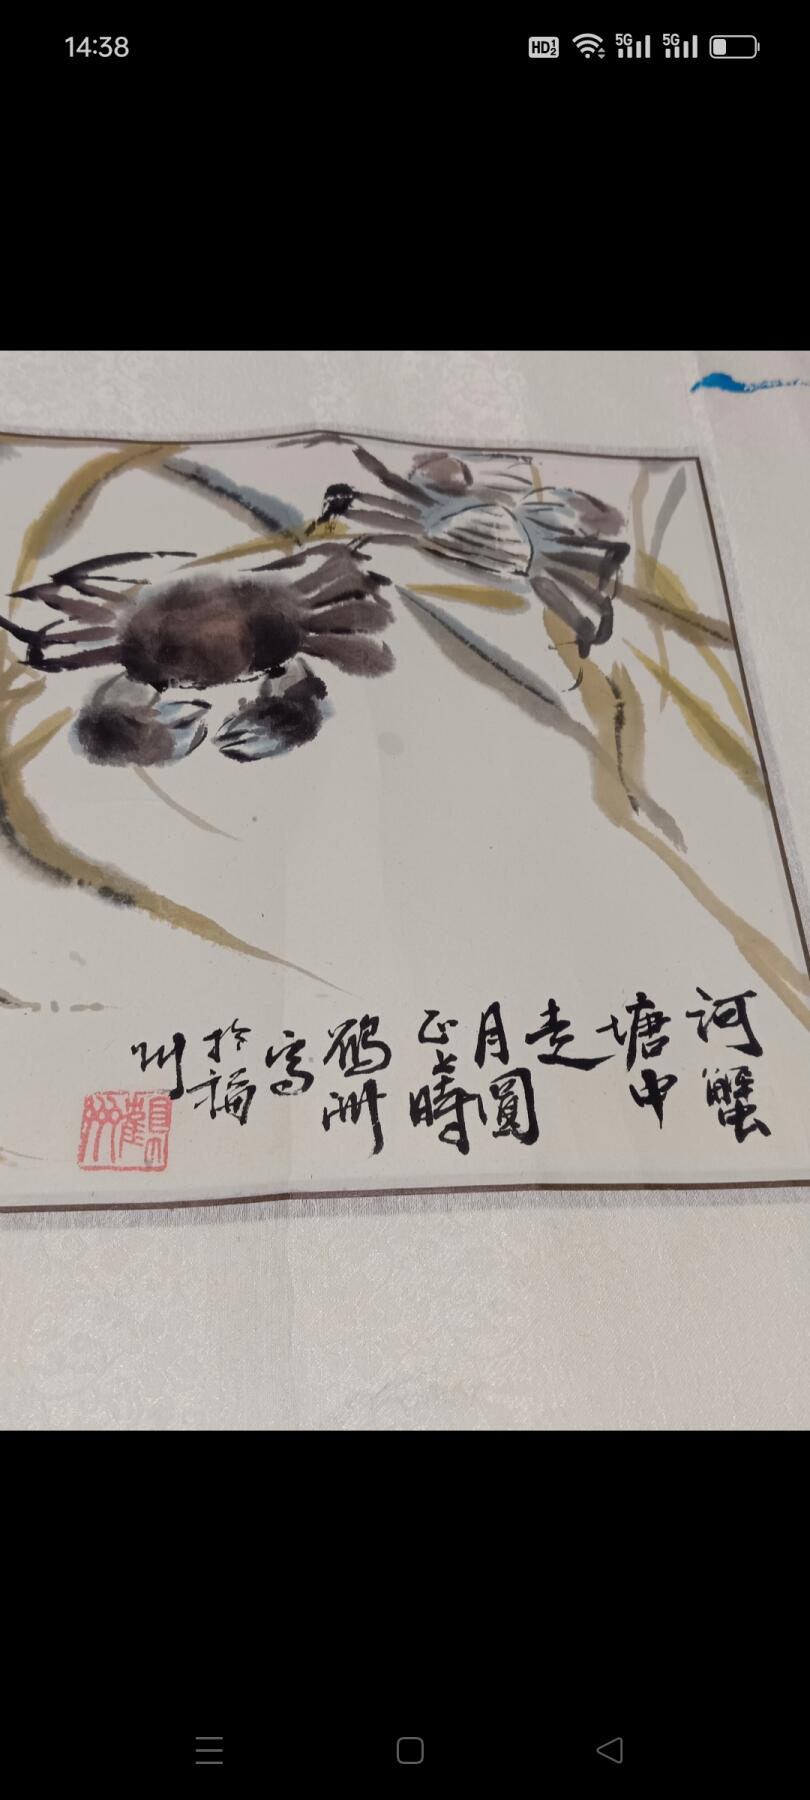 14:38
HD 1 2
5G
5G
河蟹
塘中
走
月圓
正上時
鶴洲
寫
於福
州